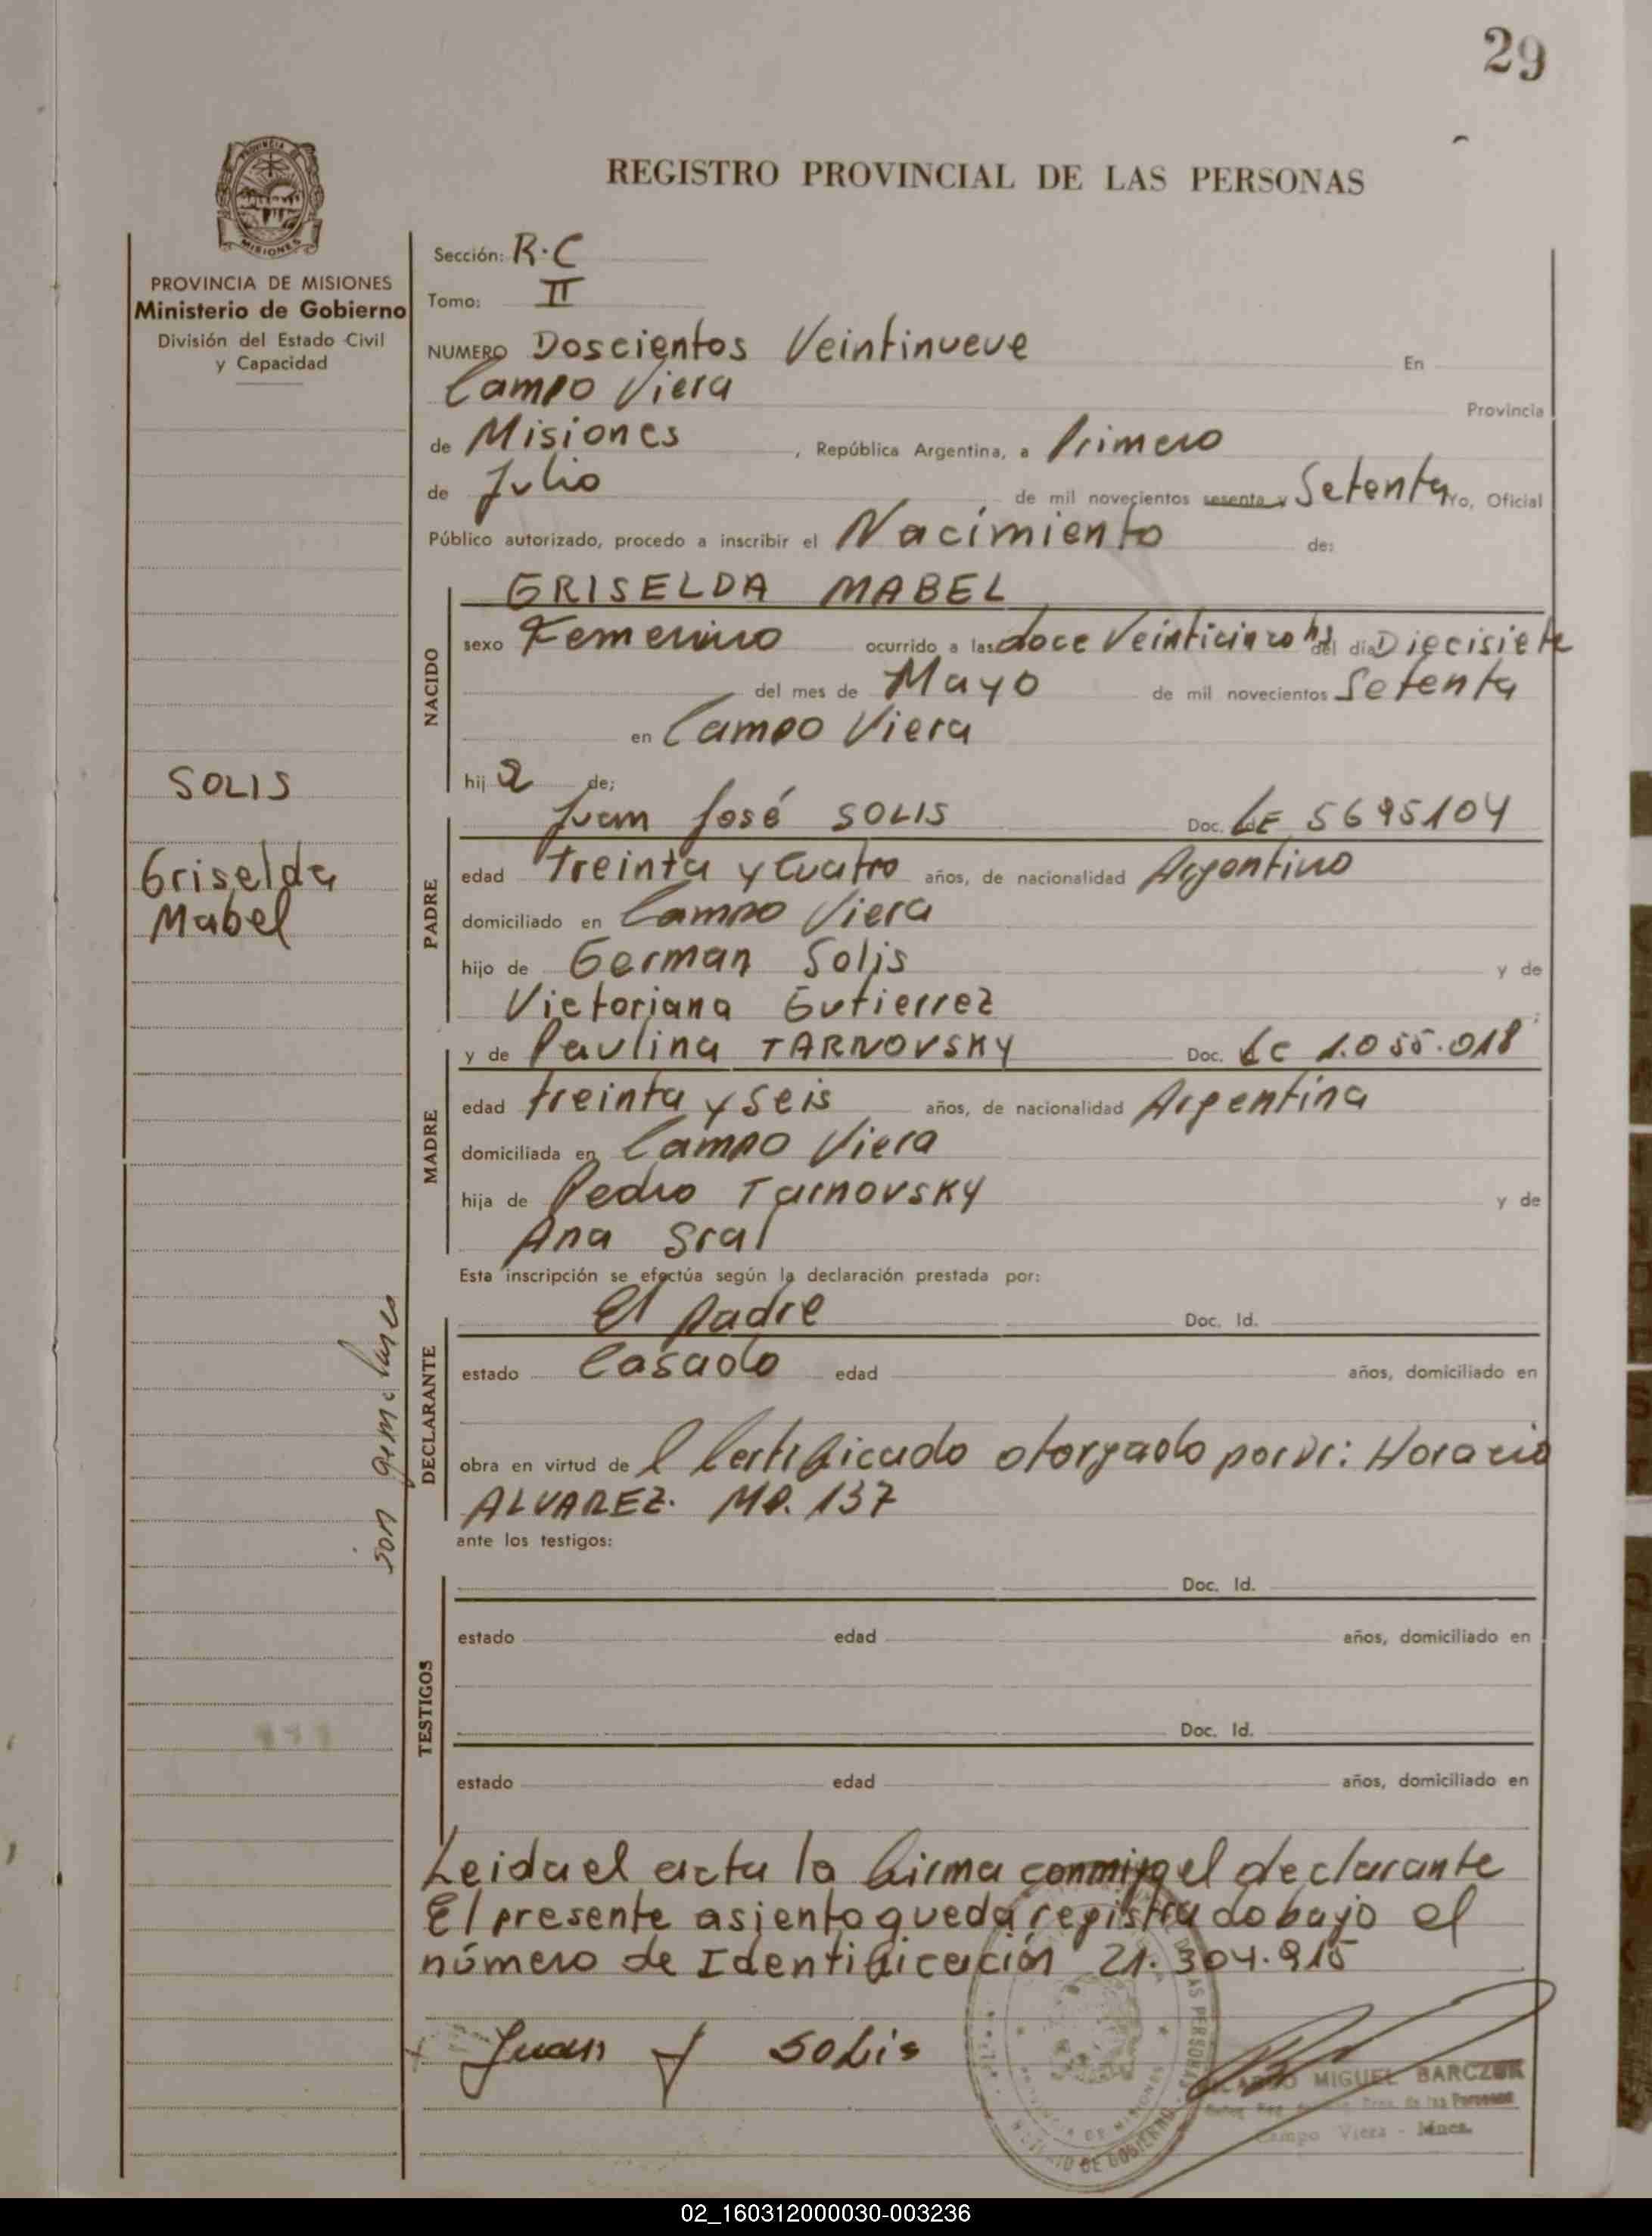 29
REGISTRO PROVINCIAL DE LAS PERSONAS
PROVINCIA DE MISIONES
Ministerio de Gobierno
División del Estado Civil
y Capacidad
Sección: R.C
Tomo: II
NUMERO Doscientos Veintinueve En
Campo Viera Provincia
de Misiones, República Argentina, a Primero
de Julio de mil novecientos sesenta y Setenta Yo, Oficial
Público autorizado, procedo a inscribir el Nacimiento de:
NACIDO
GRISELDA MABEL
sexo Femenino ocurrido a las doce Veinticinco hs del día Diecisiete
del mes de Mayo de mil novecientos Setenta
en Campo Viera
hij a de;
SOLIS
Griselda
Mabel
PADRE
Juan José SOLIS Doc. LE 5695104
edad Treinta y Cuatro años, de nacionalidad Argentino
domiciliado en Campo Viera
hijo de German Solis y de
Victoriana Gutierrez
MADRE
y de Paulina TARNOVSKY Doc. LC 1.055.018
edad treinta y seis años, de nacionalidad Argentina
domiciliada en Campo Viera
hija de Pedro Tarnovsky y de
Ana Sral
Esta inscripción se efectúa según la declaración prestada por:
DECLARANTE
El padre Doc. Id.
estado Casado edad años, domiciliado en
obra en virtud de l Certificado otorgado por Dr: Horacio
ALVAREZ. MP. 137
son gemelares
ante los testigos:
TESTIGOS
Doc. Id.
estado edad años, domiciliado en
Doc. Id.
estado edad años, domiciliado en
Leida el acta la firma conmigo el declarante
El presente asiento queda registrado bajo el
número de Identificación 21.304.915
Juan J Solis
MIGUEL BARCZUK
Campo Viera - Mnes.
02_160312000030-003236